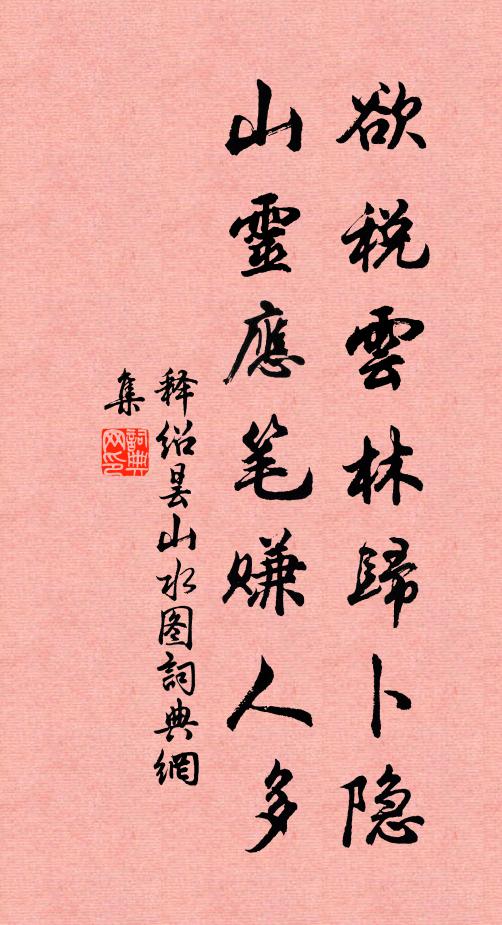 欲税雲林歸卜隐
山靈應笔赚人多
释绍昙山水图詞典網
集
詞典
网印